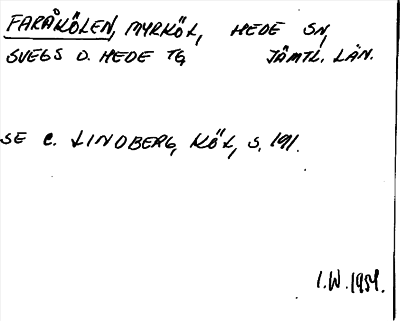 FARÅKÖLEN, MYRKÖL, HEDE SN,
SVEGS O. HEDE TG JÄMTL. LÄN.
SE C. LINDBERG, KÖL, S. 191.
I.W. 1954.